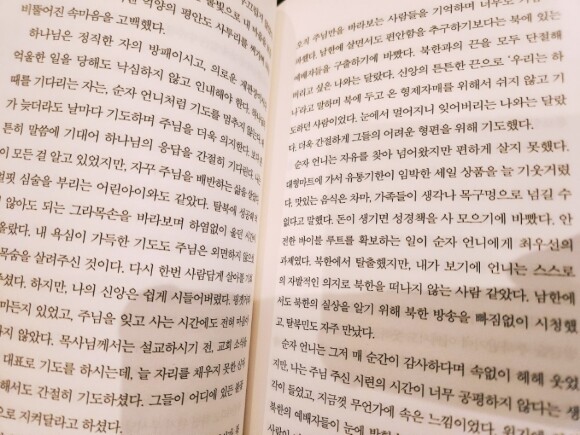 억양의 평안도 사투리를
비뚤어진 속마음을 고백했다.
하나님은 정직한 자의 방패이시고, 의로운
억울한 일을 당해도 낙심하지 않고 인내해야 한다.
때를 기다리는 자는, 순자 언니처럼 기도를 멈추지 않는다.
가 늦더라도 날마다 기도하며 주님을 더욱 의지한다.
튼히 말씀에 기대어 하나님의 응답을 간절히 기다린다.
이 모든 걸 알고 있었지만, 자꾸 주님을 배반하는 삶을
심술을 부리는 어린아이와도 같았다. 탈북에 성공해
않아도 되는 그라목손을 바라보며 하염없이 울던
올랐다. 내 욕심이 가득한 기도도 주님은 외면하지
목숨을 살려주신 것이다. 다시 한번 사람답게 살아볼
주셨다. 하지만, 나의 신앙은 쉽게 시들어버렸다.
마든지 있었고, 주님을 잊고 사는 시간에도 전혀
하지 않았다. 목사님께서는 설교하시기 전, 교회
대표로 기도를 하시는데, 늘 자리를 채우지 못한
해서도 간절히 기도하셨다. 그들이 어디에 있든
으로 지켜달라고 하셨다.
오직 주님만을 바라보는 사람들을 기억하며
했다. 남한에 살면서도 편안함을 추구하기보다는 북에 있는
예배자들을 구출하기에 바빴다. 북한과의 끈을 모두 단절해
버리고 싶은 나와는 달랐다. 신앙의 튼튼한 끈으로 '우리는 하
나'라고 말하며 북에 두고 온 형제자매를 위해서 쉬지 않고 기
도하던 사람이었다. 눈에서 멀어지니 잊어버리는 나와는 달랐
다. 더욱 간절하게 그들의 어려운 형편을 위해 기도했다.
순자 언니는 자유를 찾아 넘어왔지만 편하게 살지 못했다.
대형마트에 가서 유통기한이 임박한 세일 상품을 늘 기웃거렸
다. 맛있는 음식은 차마, 가족들이 생각나 목구멍으로 넘길 수
없다고 말했다. 돈이 생기면 성경책을 사 모으기에 바빴다. 안
전한 바이블 루트를 확보하는 일이 순자 언니에게 최우선의
과제였다. 북한에서 탈출했지만, 내가 보기에 언니는 스스로
의 자발적인 의지로 북한을 떠나지 않는 사람 같았다. 남한에
서도 북한의 실상을 알기 위해 북한 방송을 빠짐없이 시청했
고, 탈북민도 자주 만났다.
순자 언니는 그저 매 순간이 감사하다며 속없이 헤헤 웃었
지만, 나는 주님 주신 시련의 시간이 너무 공평하지 않다는 생
각이 들었고, 지금껏 무언가에 속은 느낌이었다.
북한의 예배자들이 눈에